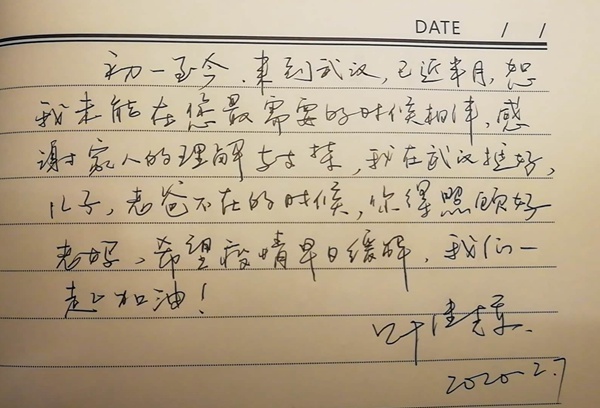 DATE / /
初一至今,来到武汉,已近半月,恕
我未能在您最需要的时候相伴,感
谢家人的理解与支持,我在武汉挺好,
儿子,老爸不在的时候,你得照顾好
老妈,希望疫情早日缓解,我们一
起加油!
叶
2020.2.7